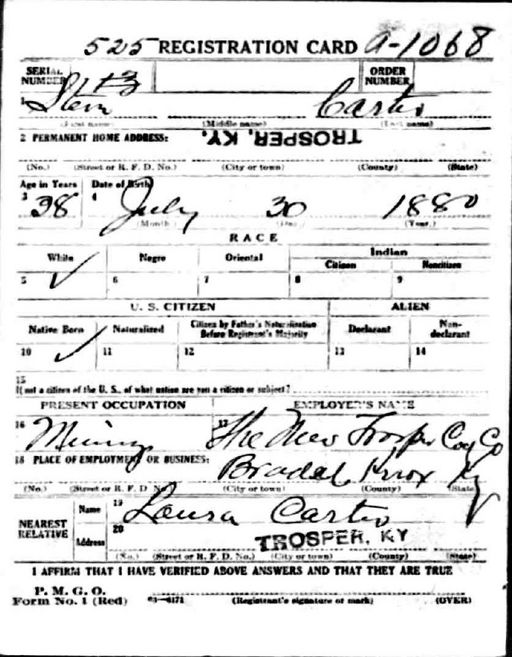 525 REGISTRATION CARD A-1068
SERIAL NUMBER
ORDER NUMBER
1
(First name) (Middle name) (Last name)
2 PERMANENT HOME ADDRESS: TROSPER, KY.
(No.) (Street or R. F. D. No.) (City or town) (County) (State)
Age in Years Date of Birth
3 38 4 July 30 1880
(Month) (Day) (Year)
RACE
White Negro Oriental Indian
Citizen Noncitizen
5 ✓ 6 7 8 9
U. S. CITIZEN ALIEN
Native Born Naturalized Citizen by Father's Naturalization Before Registrant's Majority Declarant Non-declarant
10 ✓ 11 12 13 14
15
If not a citizen of the U. S., of what nation are you a citizen or subject?
PRESENT OCCUPATION EMPLOYER'S NAME
16 Mining 17 The New Trosper Coal Co
18 PLACE OF EMPLOYMENT OR BUSINESS:
Knox Ky
(No.) (Street or R. F. D. No.) (City or town) (County) (State)
NEAREST RELATIVE
Name 19 Laura Carter
Address 20 TROSPER, KY
(No.) (Street or R. F. D. No.) (City or town) (County) (State)
I AFFIRM THAT I HAVE VERIFIED ABOVE ANSWERS AND THAT THEY ARE TRUE
P. M. G. O.
Form No. 1 (Red) 03—6171 (Registrant's signature or mark) (OVER)